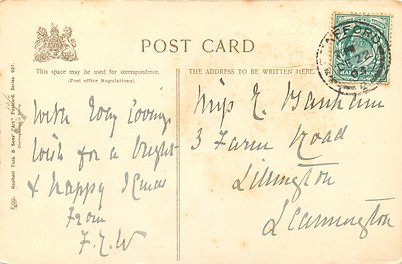 POST CARD
This space may be used for correspondence.
(Post office Regulations).
THE ADDRESS TO BE WRITTEN HERE
With Loving
Wish for a Bright
& Happy Xmas
From
F.L.W
Miss E.
3 Farm Road
Lillington
Leamington
HAFFORD
Raphael Tuck & Sons' "Art" Postcard, Series 971.